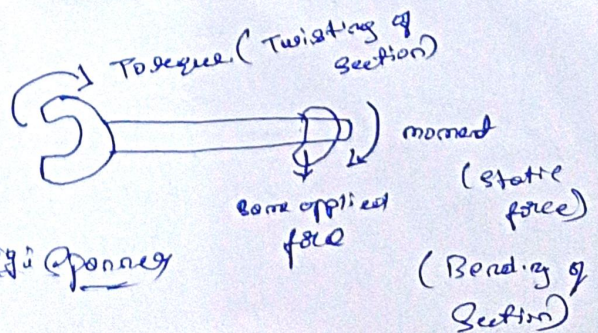 Torque (Twisting of
Section)
moment
(static
force)
some applied
force
(Bending of
Section)